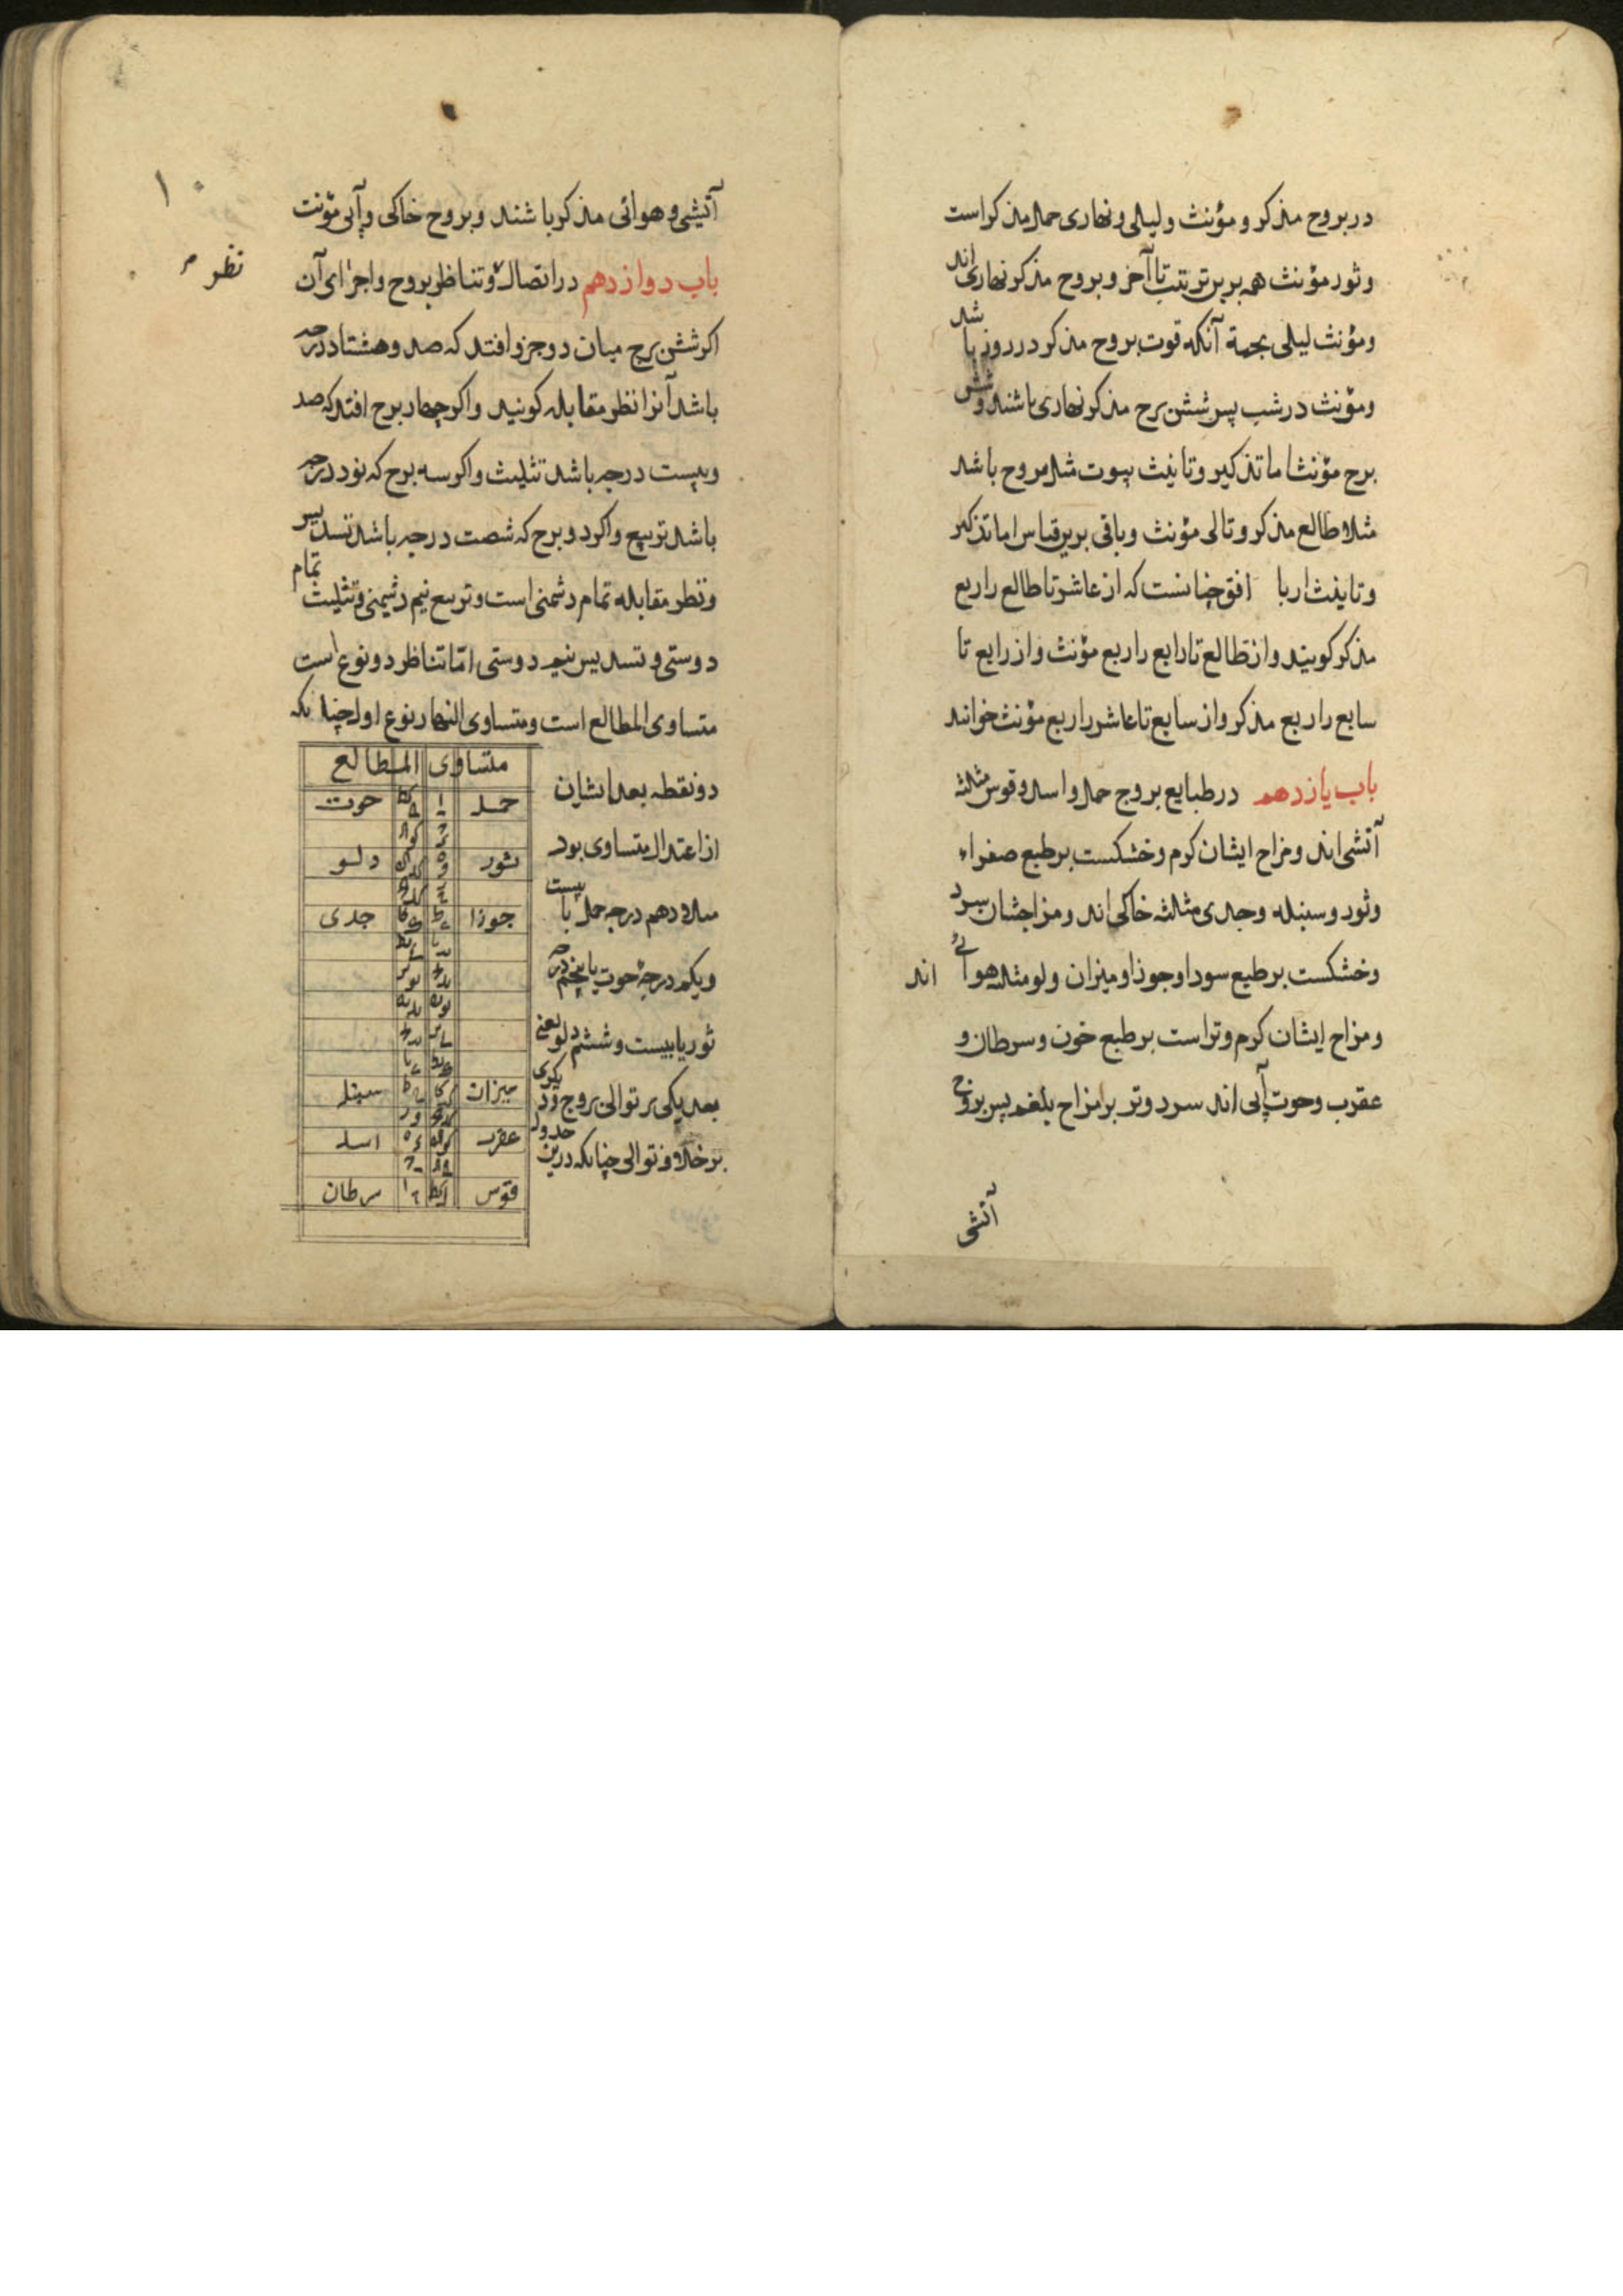 در بروج مذکر و مؤنث و لیلی و نهاری حمل مذکر است
و ثور مؤنث همه برین ترتیب تا آخر و بروج مذکر نهاری اند
و مؤنث لیلی بجهة آنکه قوت بروج مذکر در روز باشد
و مؤنث در شب پس شش برج مذکر نهاری باشند و شش
برج مؤنث اما تذکیر و تانیث بیوت مثل بروج باشد
مثلا طالع مذکر و تالی مؤنث و باقی برین قیاس اما تذکیر
و تانیث ارباع افق چنانست که از عاشر تا طالع را ربع
مذکر کویند و از طالع تا رابع را ربع مؤنث و از رابع تا
سابع را ربع مذکر و از سابع تا عاشر را ربع مؤنث خوانند
باب یازدهم در طبایع بروج حمل و اسد و قوس مثلثه
آتشی اند و مزاج ایشان کرم و خشکست بر طبع صفراء
و ثور و سنبله و جدی مثلثه خاکی اند و مزاجشان سرد
و خشکست بر طبع سودا و جوزا و میزان و لو مثلثه هوائی اند
و مزاج ایشان کرم و تر است بر طبع خون و سرطان و
عقرب و حوت آبی اند سرد و تر بر امزاج بلغم پس بروج
آتشی
۱۰
نظر
آتیشی و هوائی مذکر باشند و بروج خاکی و آبی مؤنث
باب دوازدهم در اتصال و تناظر بروج و اجزای آن
اکر شش برج میان دو جزو افتد که صد و هشتاد درجه
باشد آنرا نظر مقابله کویند و اکر چهار برج افتد که صد
و بیست درجه باشد تثلیث و اکر سه برج که نود درجه
باشد تربیع و اکر دو برج که شصت درجه باشد تسدیس
و نظر مقابله تمام دشمنی است و تربیع نیم دشمنی و تثلیث تمام
دوستی و تسدیس نیمه دوستی اما تناظر دو نوع است
متساوی المطالع است و متساوی النهار نوع اول چنانکه
دو نقطه بعد ایشان
از اعتدال متساوی بود
مثلا دهم درجه حمل با بیست
و یکم درجهٔ حوت یا پنجم درجه
ثور یا بیست و ششم دلو یعنی
بعد یکی بر توالی بروج و دیکری
بر خلاف توالی چنانکه درین جدول
متساوی المطالع
حمل ا کط حوت
ثور دلو
جوزا جدی
میزان سنبله
عقرب اسد
قوس سرطان